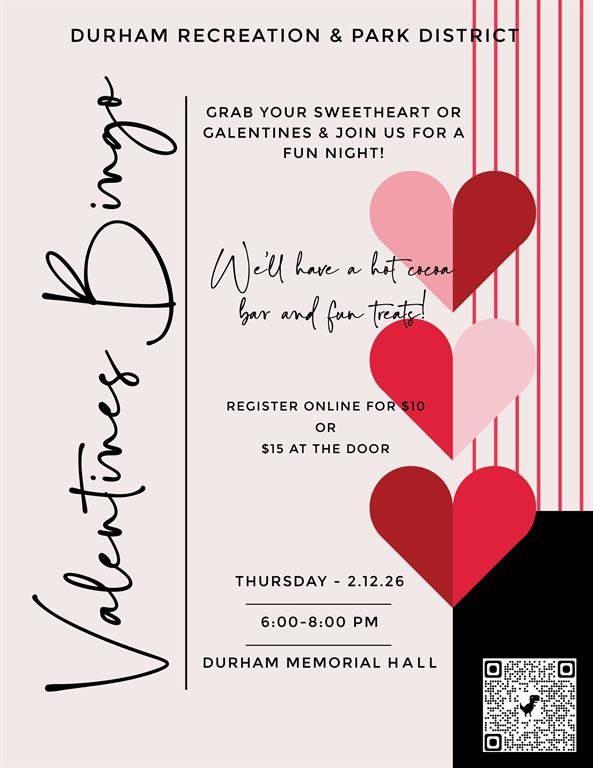 DURHAM RECREATION & PARK DISTRICT
Valentines Bingo
GRAB YOUR SWEETHEART OR
GALENTINES & JOIN US FOR A
FUN NIGHT!
We'll have a hot cocoa
bar and fun treats!
REGISTER ONLINE FOR $10
OR
$15 AT THE DOOR
THURSDAY - 2.12.26
6:00-8:00 PM
DURHAM MEMORIAL HALL